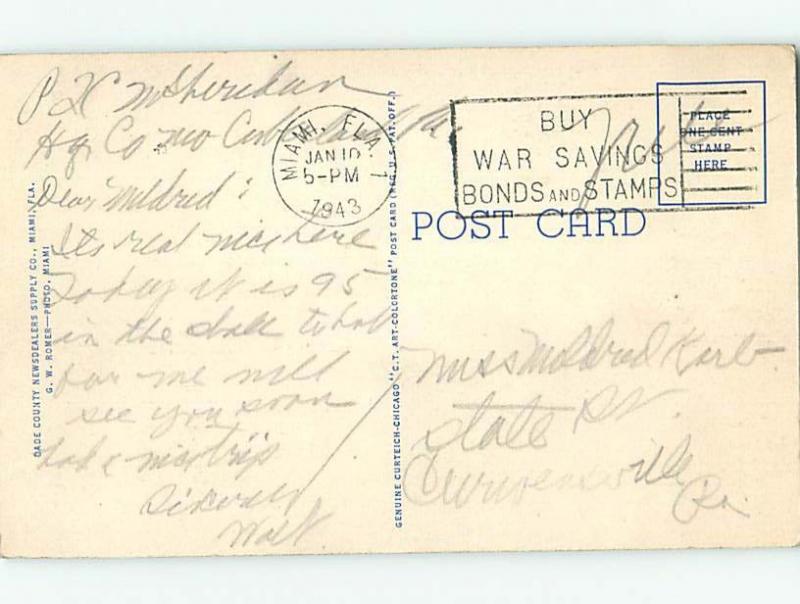 Dear Mildred:
Its real nice here
Today it is 95
in the shade to hot
for me will
see you soon
had a nice trip
Walt
DADE COUNTY NEWSDEALERS SUPPLY CO., MIAMI, FLA.
G. W. ROMER—PHOTO, MIAMI
GENUINE CURTEICH-CHICAGO "C.T. ART-COLORTONE" POST CARD (REG. U.S. PAT. OFF.)
MIAMI, FLA. 1
JAN 10
5-PM
1943
BUY
WAR SAVINGS
BONDS AND STAMPS
Free
PLACE
ONE CENT
STAMP
HERE
POST CARD
Miss Mildred
State St.
Curwensville
Pa.